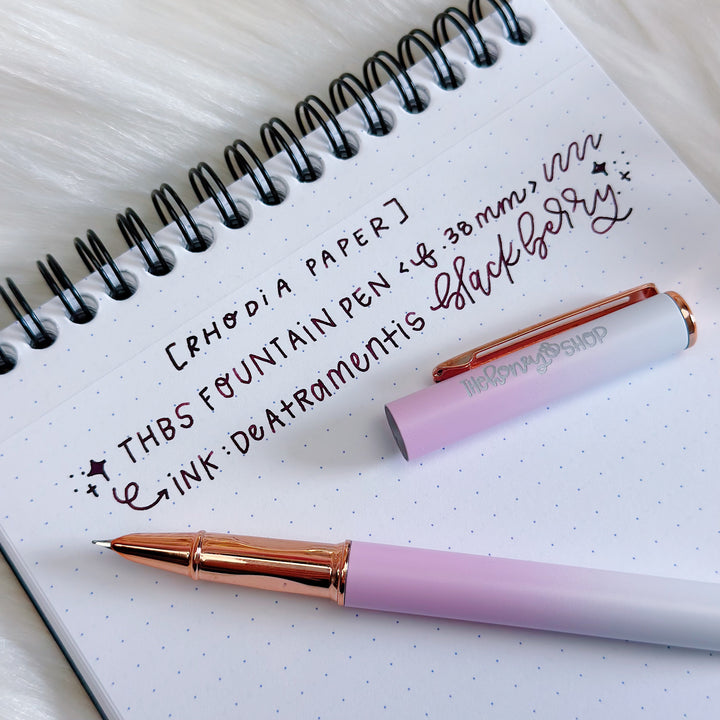 [RHODIA PAPER]
THBS FOUNTAIN PEN <f .38mm>
INK: DeAtRamentis blackberry
THE Honey B SHOP